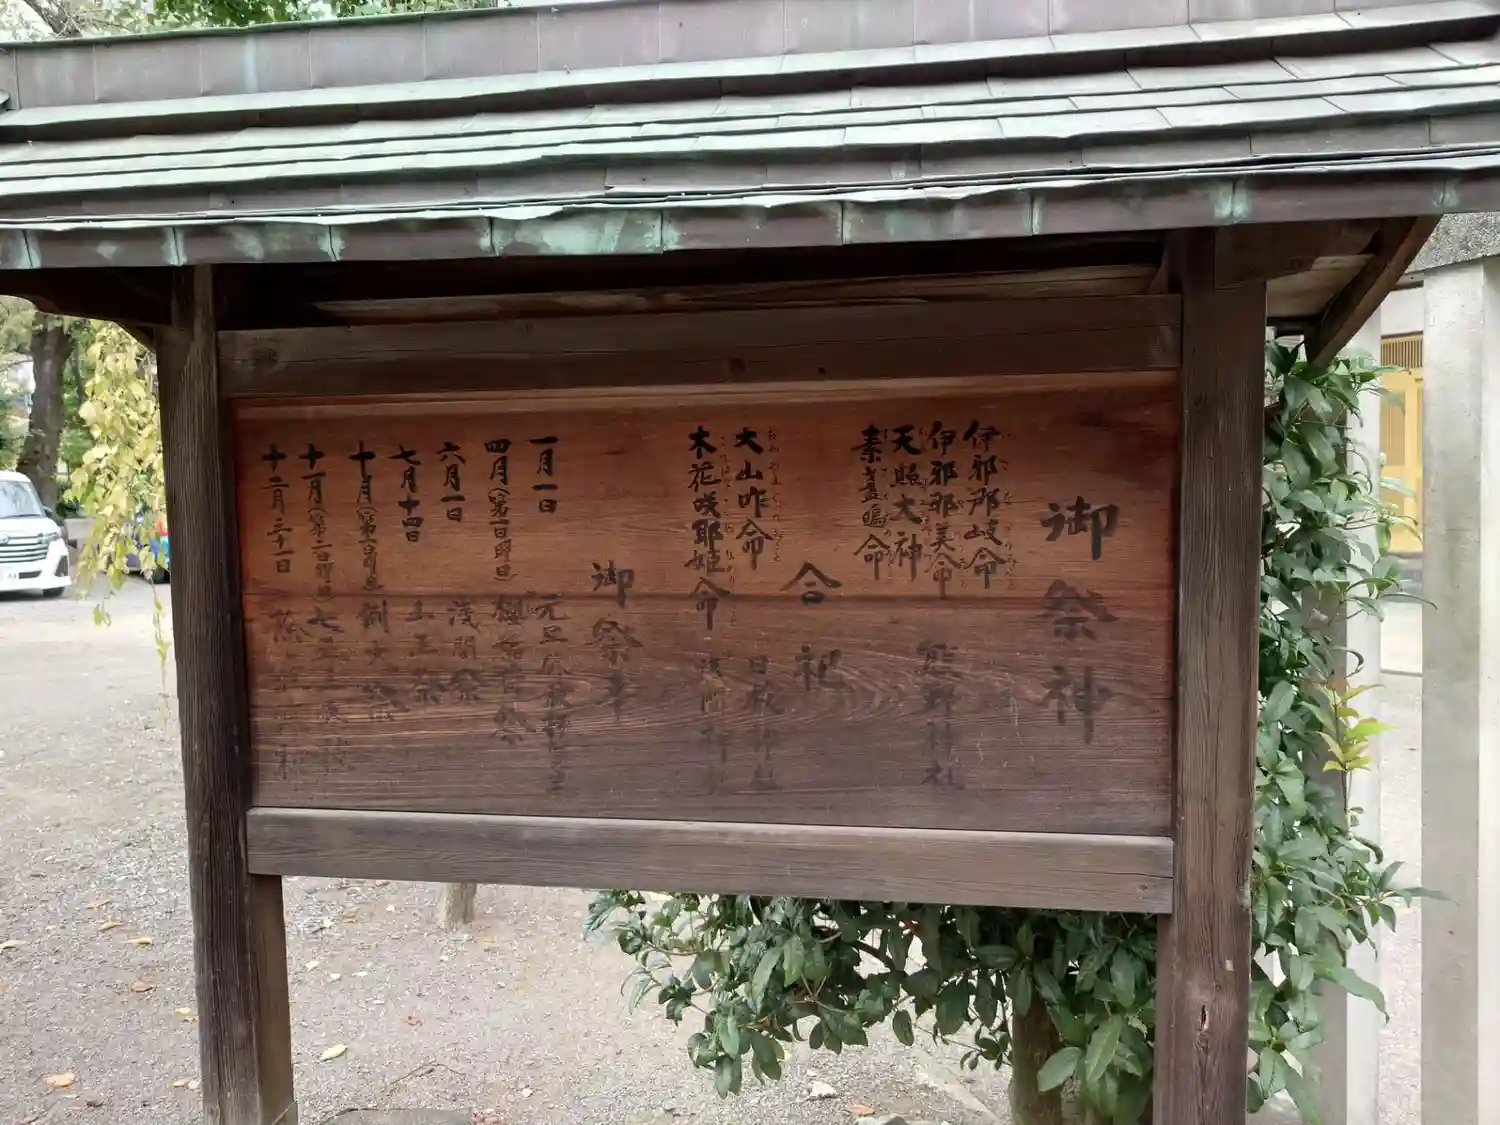 御祭神
伊邪那岐命
伊邪那美命
天照大神
素盞嗚命
熊野神社
合祀
大山咋命 日枝神社
木花咲耶姫命 浅間神社
御祭事
一月一日 元旦
四月(第一日曜日) 桜花祭
六月一日 浅間祭
七月十四日 山王祭
十月 例大祭
十一月 七五三
十二月三十一日